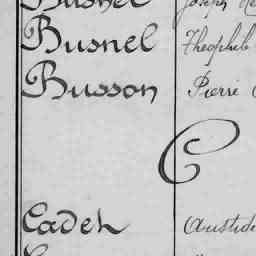 Busnel Joseph
Busnel Théophile
Busson Pierre
C
Cadeh Aristide